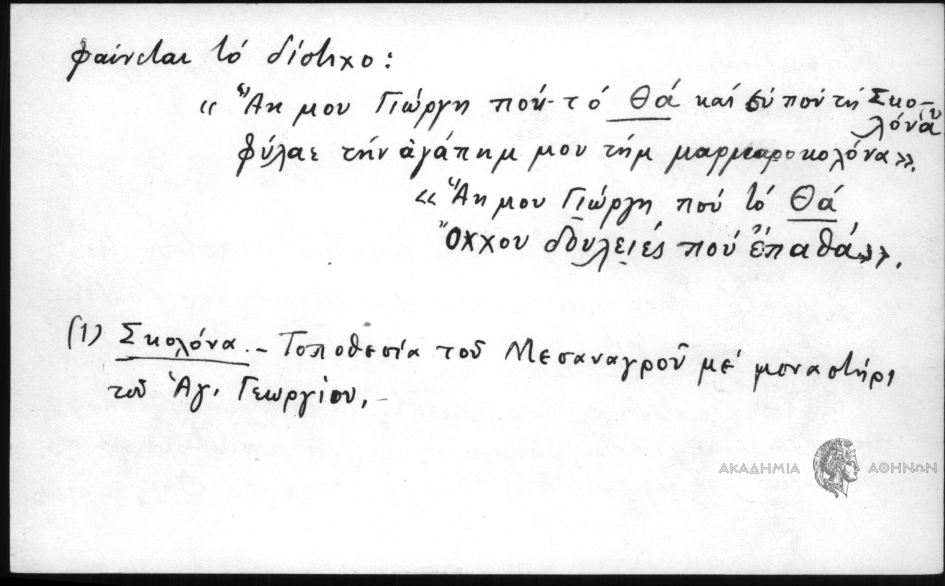 φαίνεται τό δίστιχο:
« Ἄη μου Γιώργη πού τό Θά καί πού τή Σκο-
λόνα
φύλαε τήν ἀγάπημ μου τήμ μαρμαροκολόνα».
« Ἄη μου Γιώργη πού τό Θά
Ὄχχου δουλειές πού ἔπαθά»».
(1) Σκολόνα.- Τοποθεσία τοῦ Μεσαναγροῦ μέ μοναστήρι
τοῦ Ἁγ. Γεωργίου,-
ΑΚΑΔΗΜΙΑ ΑΘΗΝΩΝ